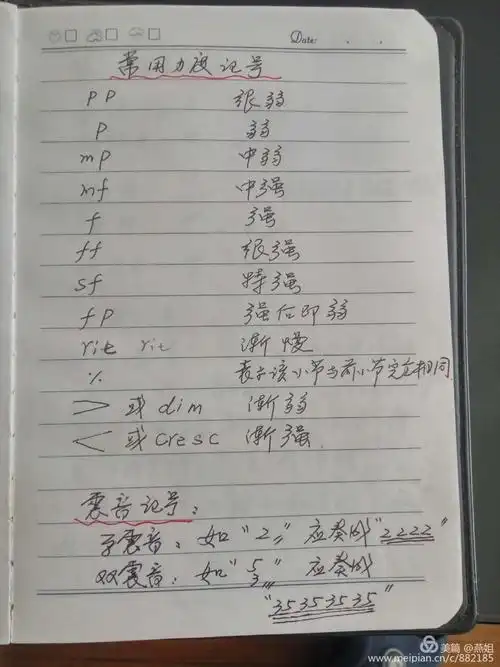 Date: . .
常用力度记号
pp 很弱
p 弱
mp 中弱
mf 中强
f 强
ff 很强
sf 特强
fp 强后即弱
rit rit 渐慢
% 表示该小节与前小节完全相同
> 或 dim 渐弱
< 或 cresc 渐强
震音记号:
单震音: 如"2〃" 应奏成"2222"
双震音: 如"5 3" 应奏成
"35353535"
美篇 @燕姐
www.meipian.cn/c/882185